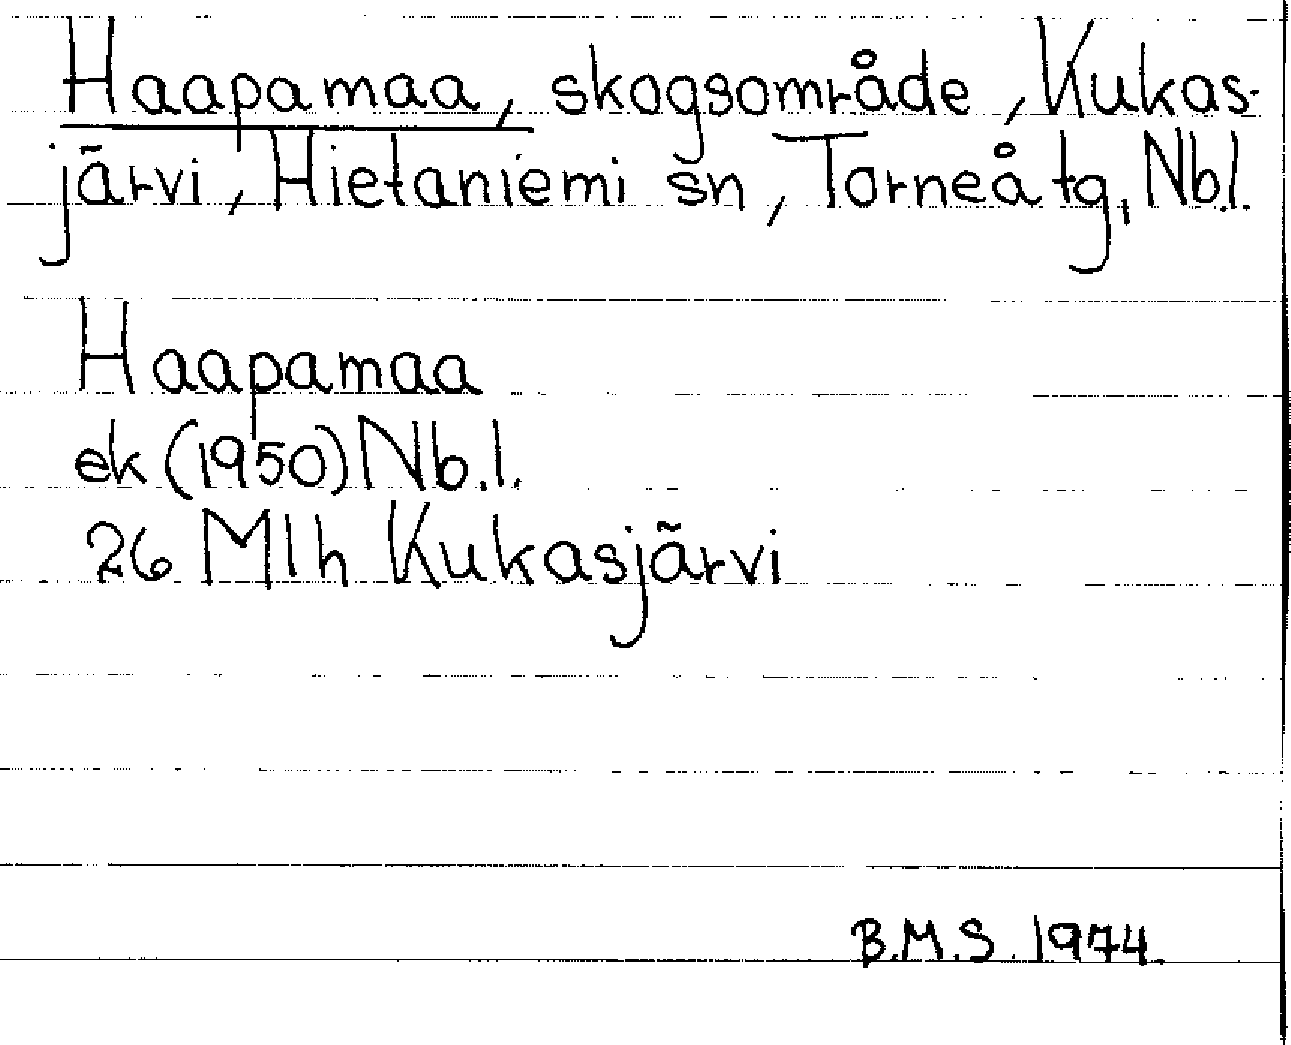 Haapamaa, skogsområde, Kukas-
järvi, Hietaniemi sn, Torneå tg, Nb.l.
Haapamaa
ek (1950) Nb.l.
26 Mlh Kukasjärvi
B.M.S. 1974.